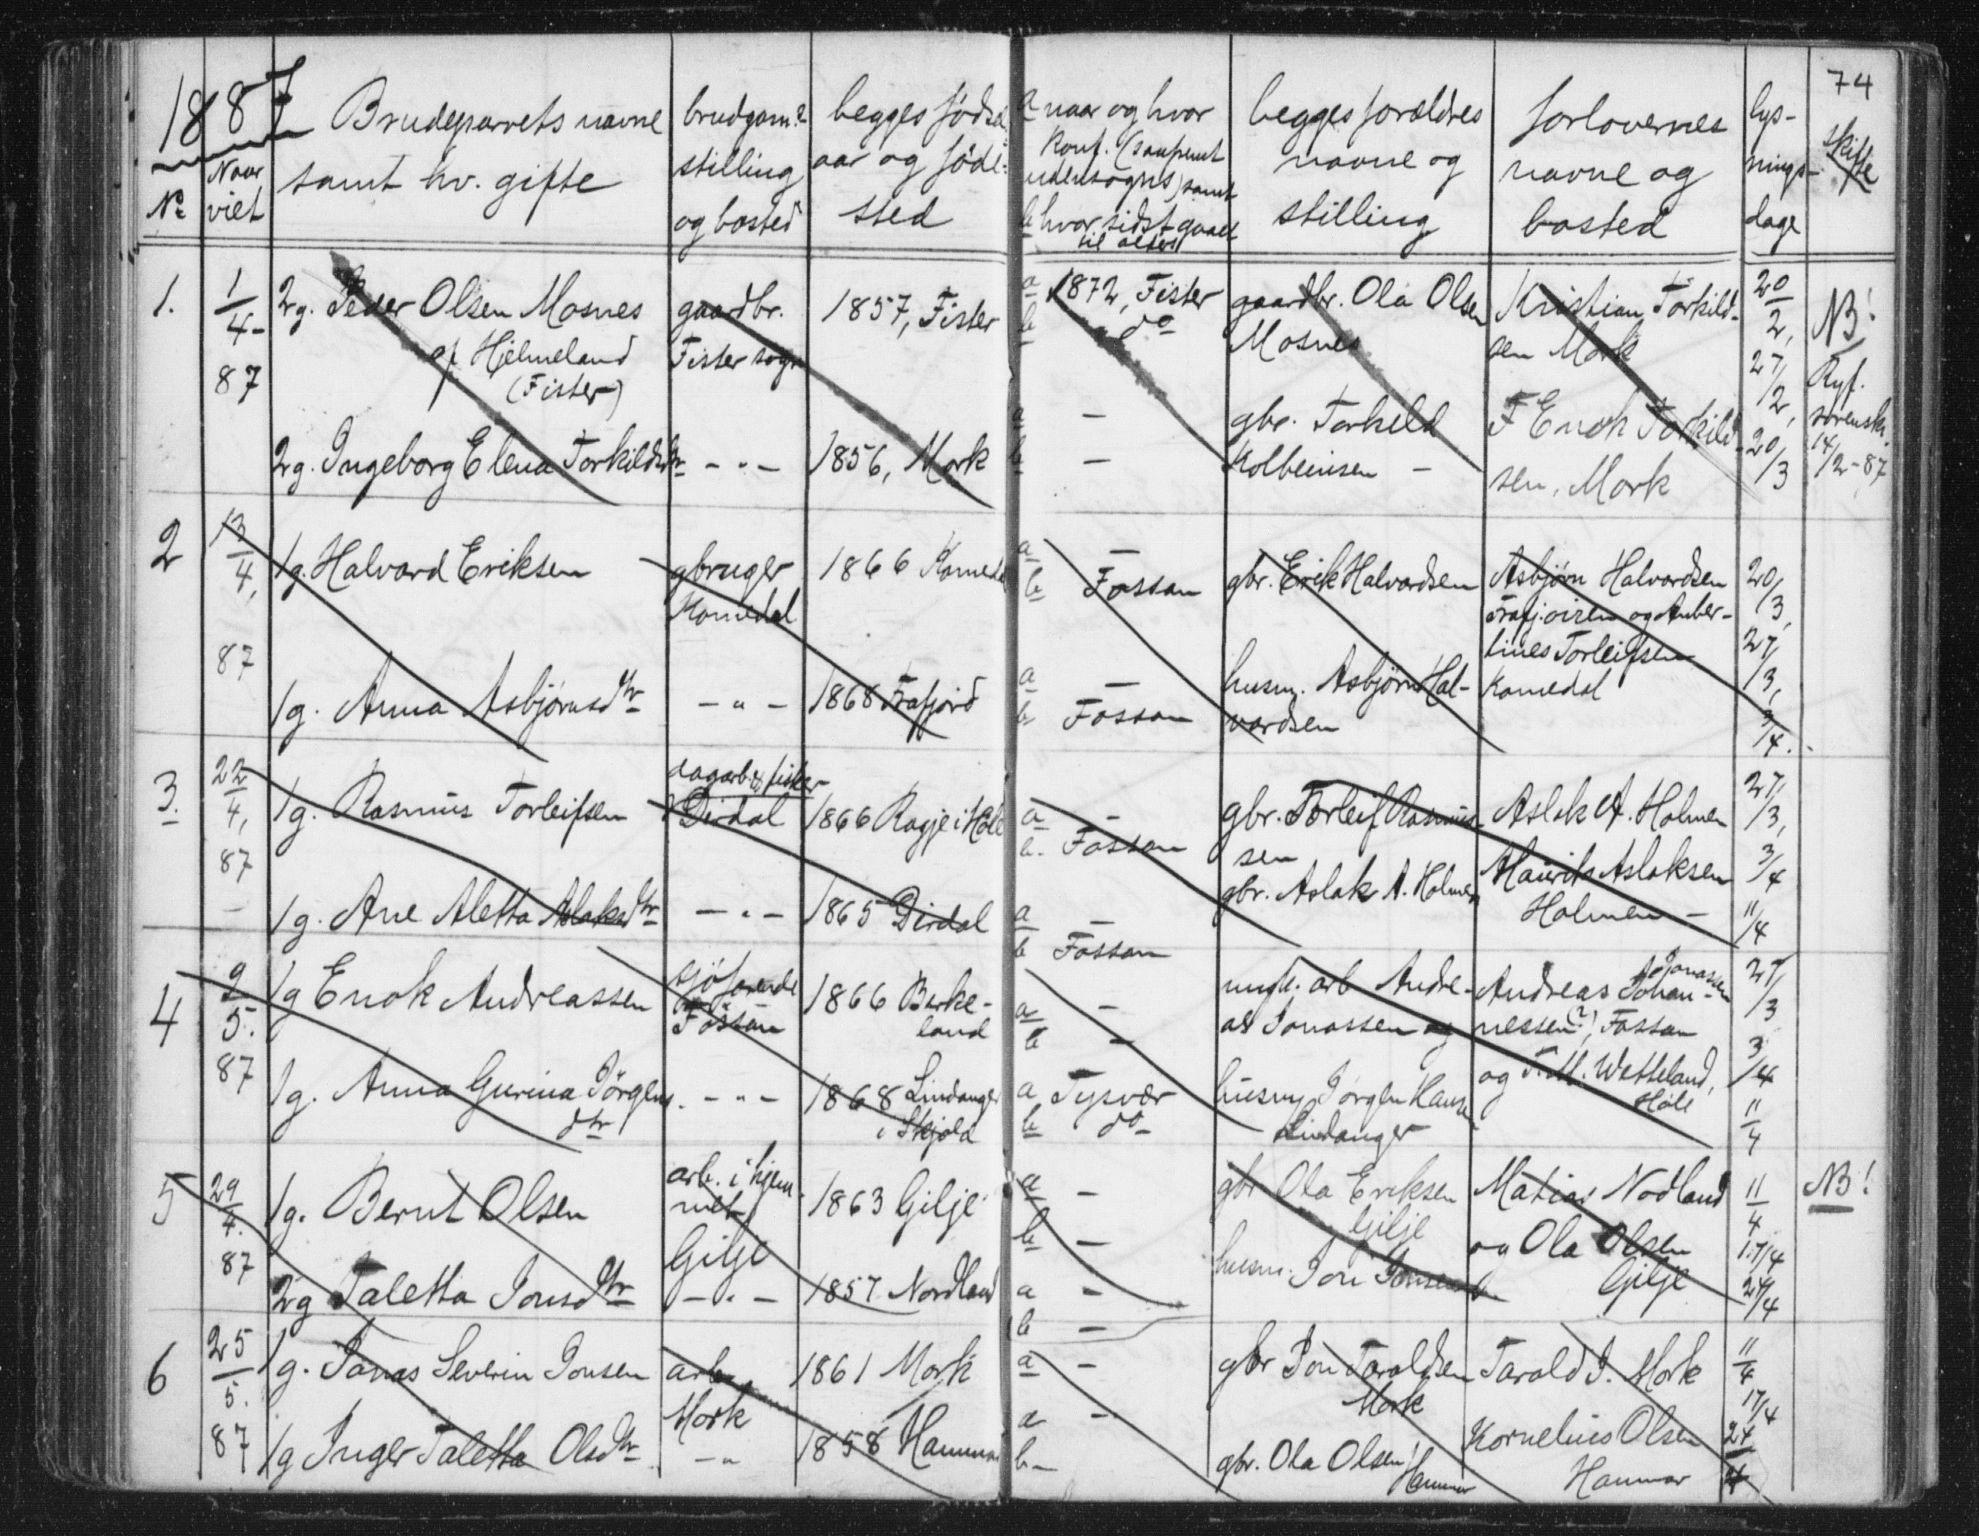 74
1887
No
Naar viet
Brudeparrets navne
samt hv. gifte
brudgom.s
stilling
og bosted
begges fødsels
aar og føde-
sted
a naar og hvor
konf. (saafremt
udensogns) samt
b hvor sidst gaaet
til alters
begges forældres
navne og
stilling
forlovernes
navne og
bosted
lys-
nings-
dage
skifte
1.
1/4 87
2g. Peder Olsen Mosnes
af Hjelmeland
(Fister)
gaardbr.
Fister sogn
1857, Fister
a 1872, Fister
b do
gaardbr. Ola Olsen
Mosnes
Kristian Torkild-
sen Mork
20/2, 27/2, 20/3
NB!
Ryf.
sorenskr.
14/2-87
2g. Ingeborg Elena Torkildsdtr
- " -
1856, Mork
a -
b -
gbr. Torkeld
Kolbeinsen -
F Enok Torkild-
sen, Mork
2
13/4, 87
1g. Halvard Eriksen
gbruger
Komedal
1866 Komedal
a -
b Fossan
gbr. Erik Halvardsen
Asbjørn Halvardsen
Frafj.oiren og Auber-
tines Torleifsen
Komedal
20/3, 27/3, 3/4.
1g. Anna Asbjørnsdtr
- " -
1868 Frafjord
a -
b Fossan
husm. Asbjørn Hal-
vardsen
3.
22/4, 87
1g. Rasmus Torleifsen
dagarb. & fisker
Dirdal
1866 Ragje i Höle
a -
b. Fossan
gbr. Torleif Rasmus-
sen
Aslak A. Holmen
Maurits Aslaksen
Holmen -
27/3, 3/4 11/4
1g. Ane Aletta Aslaksdtr
- " -
1865 Dirdal
a -
b Fossan
gbr. Aslak A. Holmen
4
9/5. 87
1g Enok Andreassen
sjøfarende
Fossan
1866 Berke-
land
a -
b -
arb Andre-
as Jonassen
Jonassen
Andreas Johan-
nessen (?), Fossan
og T. M. Wetteland,
Höle
27/3 3/4 11/4
1g. Anna Gurina Jørgens
dtr
- " -
1868 Lindanger
i Skjold
a Tysvær
b do
husm Jørgen Hansen
Lindanger
5
29/4. 87
1g. Bernt Olsen
arb. i hjem-
met
Gilje
1863 Gilje
a -
b -
gbr Ola Eriksen
Gilje
Matias Nodland
og Ola Olsen
Gilje
11/4 17/4 24/4
NB!
2g Taletta Jonsdtr
- " -
1857 Nordland
a -
b -
husm. Jon Jonsen
6
25/5. 87
1g. Jonas Severin Jonsen
arb.
Mork
1861 Mork
a -
gbr Jon Taraldsen
Mork
Tarald J. Mork
Kornelius Olsen
Hammar
11/4 17/4 24/4
1g Inger Taletta Olsdtr
- "
1858 Hammar
a -
b -
gbr. Ola Olsen
Hammar